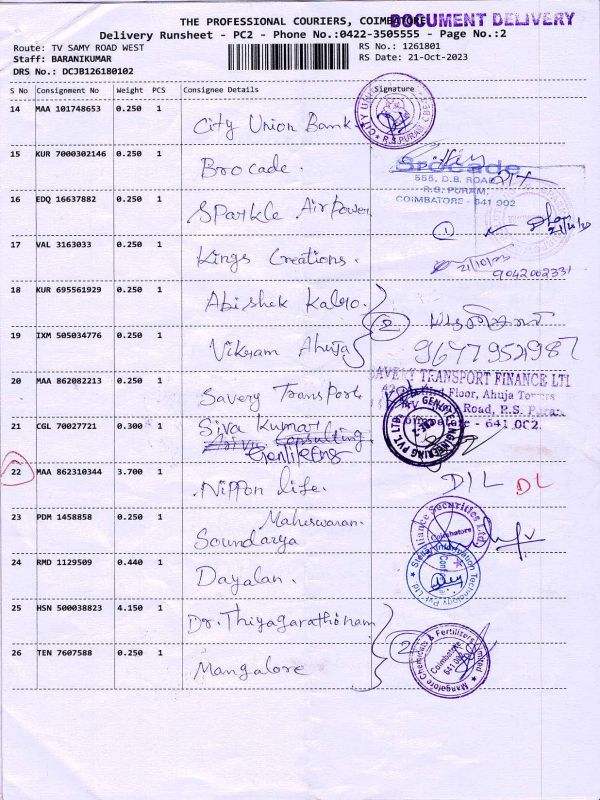 THE PROFESSIONAL COURIERS, COIMBATORE
DOCUMENT DELIVERY
Delivery Runsheet - PC2 - Phone No.:0422-3505555 - Page No.:2
Route: TV SAMY ROAD WEST
RS No.: 1261801
Staff: BARANIKUMAR
RS Date: 21-Oct-2023
DRS No.: DCJB126180102
S No Consignment No Weight PCS Consignee Details Signature
14 MAA 101748653 0.250 1 City Union Bank
CITY UNION
R.S.PURAM
15 KUR 7000302146 0.250 1 Brocade.
Brocade
555, D.B. ROAD
R.S. PURAM,
COIMBATORE - 641 002
16 EDQ 16637882 0.250 1 Sparkle Airpower
1
17 VAL 3163033 0.250 1 Kings Creations.
21/10/23
9042002331
18 KUR 695561929 0.250 1 Abishek
2
19 IXM 505034776 0.250 1 Vikram Ahuja
9677952987
20 MAA 862082213 0.250 1 Savery Transport
SAVERY TRANSPORT FINANCE LTD
Floor, Ahuja Towers
Road, R.S. Puram
Coimbatore - 641 002.
21 CGL 70027721 0.300 1 Siva Kumar
Consulting
ENGINEERING PVT. LTD.
22 MAA 862310344 3.700 1 Nippon Life.
DIL DL
23 PDM 1458858 0.250 1 Maheswaran
Soundarya
Reliance Securities Ltd
Coimbatore
24 RMD 1129509 0.440 1 Dayalan.
Technology Pvt Ltd
25 HSN 500038823 4.150 1 Dr. Thiyagarathinam
2
26 TEN 7607588 0.250 1 Mangalore
Mangalore Chemicals & Fertilizers Limited
Coimbatore
641 002